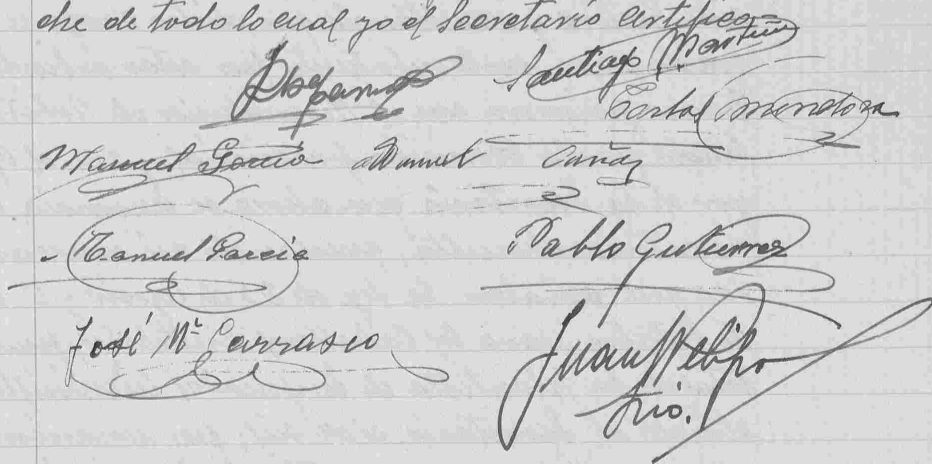 che de todo lo cual yo el Secretario certifico
Santiago Martín
Carlos Mendoza
Manuel García Manuel Cañas
Manuel García
Pablo Gutierrez
José Mª Carrasco
Juan
Srio.